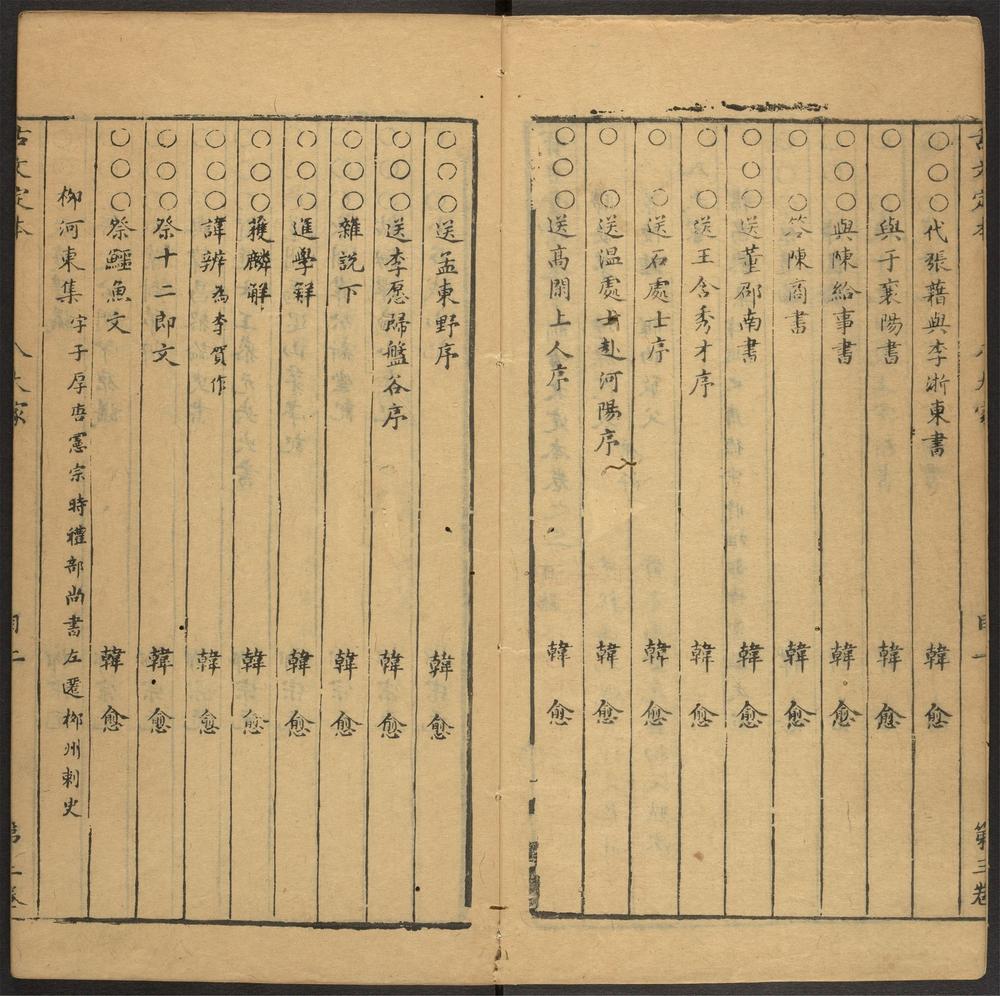 古文定本 八大家 目一 第三卷
○○○代張籍與李浙東書 韓愈
○ ○與于襄陽書 韓愈
○ ○與陳給事書 韓愈
○ ○答陳商書 韓愈
○○○送董邵南書 韓愈
○ ○送王含秀才序 韓愈
○ ○送石處士序 韓愈
○ ○送温處士赴河陽序 韓愈
○○○送高閑上人序 韓愈
○○○送孟東野序 韓愈
○○○送李愿歸盤谷序 韓愈
○○○雜說下 韓愈
○○○進學解 韓愈
○○○獲麟解 韓愈
○○○諱辨為李賀作 韓愈
○○○祭十二郎文 韓愈
○○○祭鱷魚文 韓愈
柳河東集字子厚唐憲宗時禮部尚書左遷柳州刺史
古文定本 八大家 目二